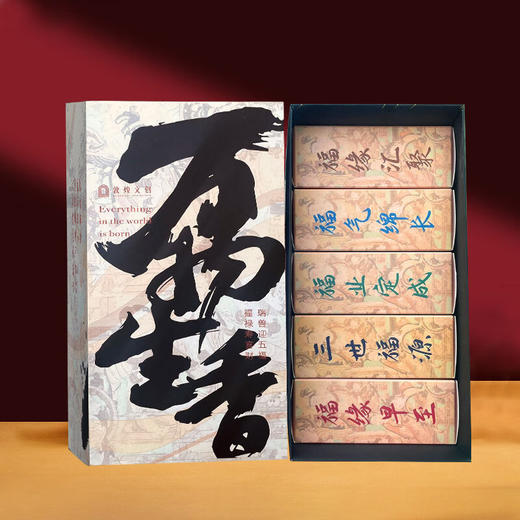 万物生香
敦煌文创
Everything
in the world
is born
瑞兽迎五福
福缘汇聚
福气绵长
福业定成
三世福源
福缘早至